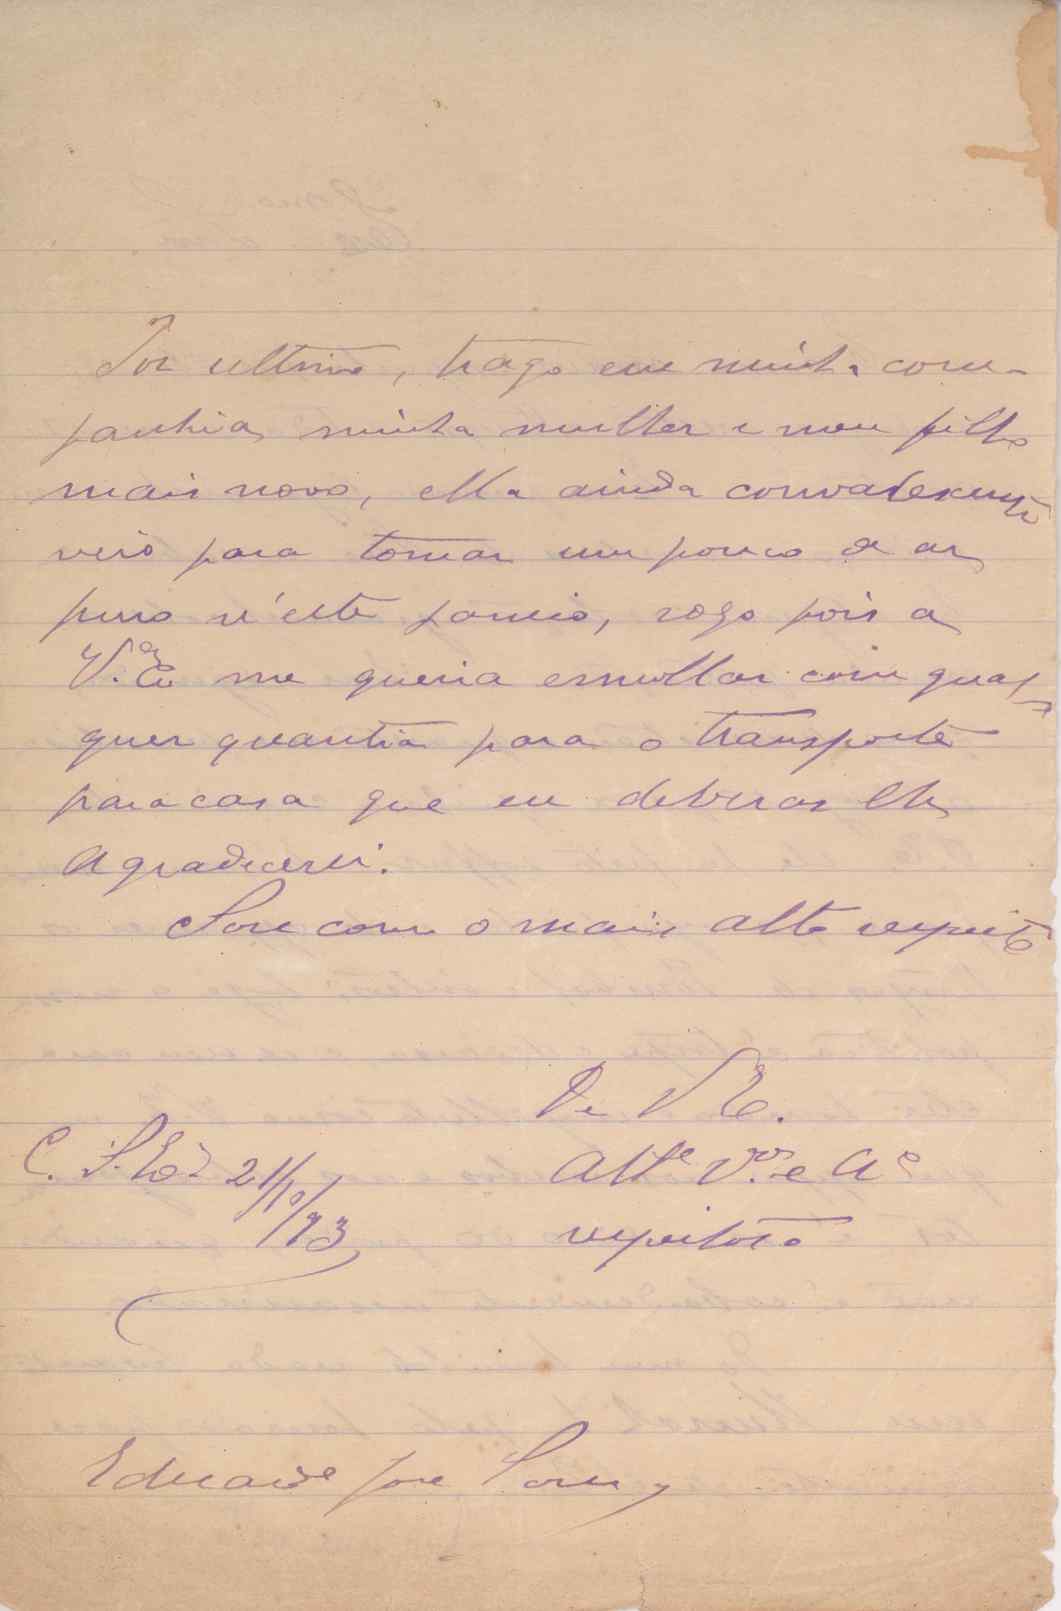 Por ultimo, trago em minha com-
panhia minha mulher e meu filho
mais novo, ella ainda convalescente
veio para tomar um pouco de ar
puro n'este passeio, rogo pois a
V. Exa me queira esmollar com qual-
quer quantia para o transporte
para casa que eu deveras lhe
agradecerei.
Sou com o mais alto respeito
De V E.
Atte Vor e Ao
respeitoso
C. S. 21/10/93
Eduardo José